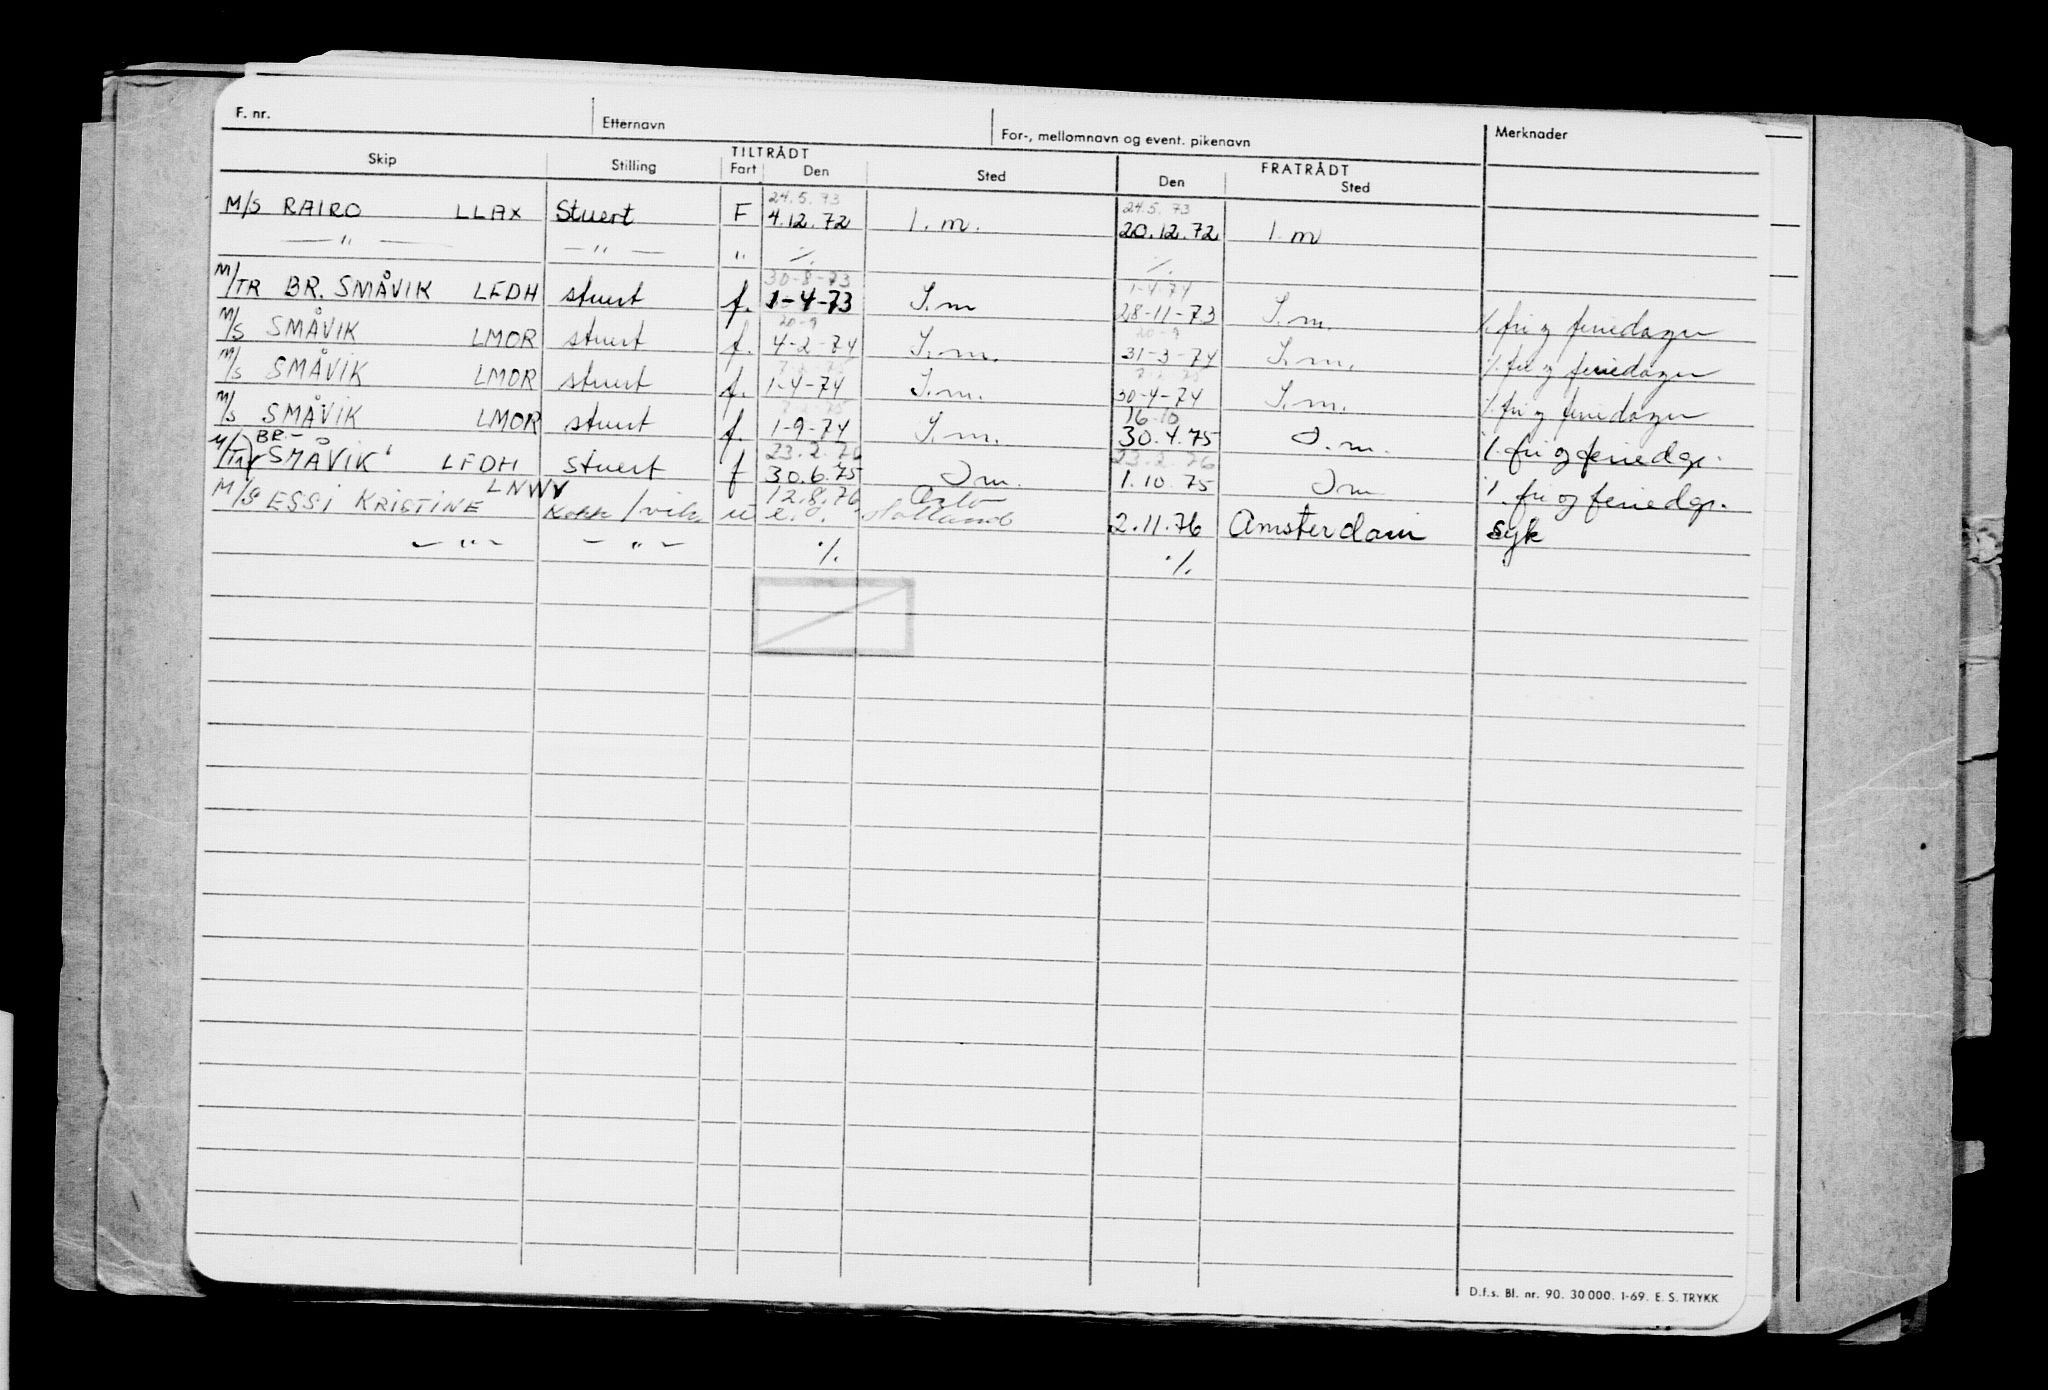 F. nr. Etternavn For-, mellomnavn og event. pikenavn Merknader
TILTRÅDT FRATRÅDT
Skip Stilling Fart Den Sted Den Sted
24.5.73 24.5.73
M/S RAIRO LLAX Stuert F 4.12.72 I.m. 20.12.72 I.m
— " — — " — " ./. ./.
30-8-73 1-4-74
M/TR BR. SMÅVIK LFDH stuert f. 1-4-73 I.m 28-11-73 I.m. ./. fri og feriedager
20-9 20-9
M/S SMÅVIK LMOR stuert f. 4-2-74 I.m. 31-3-74 I.m. ./. fri og feriedager
M/S SMÅVIK LMOR stuert f. 1-4-74 I.m. 30-4-74 I.m. ./. fri og feriedager
16-10
M/S SMÅVIK LMOR stuert f. 1-9-74 I.m. 30.4.75 I.m. ./. fri og feriedgr.
23.2.76 23.2.76
M/Tr BR- SMÅVIK LFDH stuert f 30.6.75 I m. 1.10.75 I m ./. fri og feriedgr.
LNWV 12.8.76 Oslo
M/S ESSI KRISTINE Kokk / u Holland 2.11.76 Amsterdam syk
— " — — " — ./. ./.
D.f.s. Bl. nr. 90. 30 000. 1-69. E. S. TRYKK